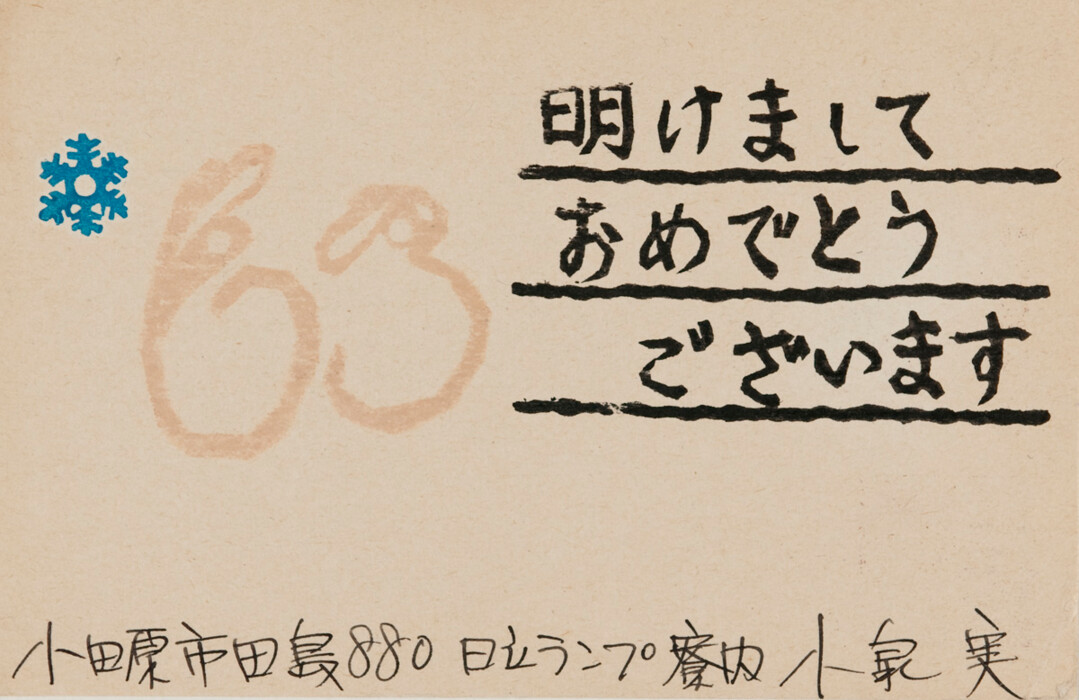 明けまして
おめでとう
ございます
63
小田原市田島880 日立ランプ寮内 小泉 実